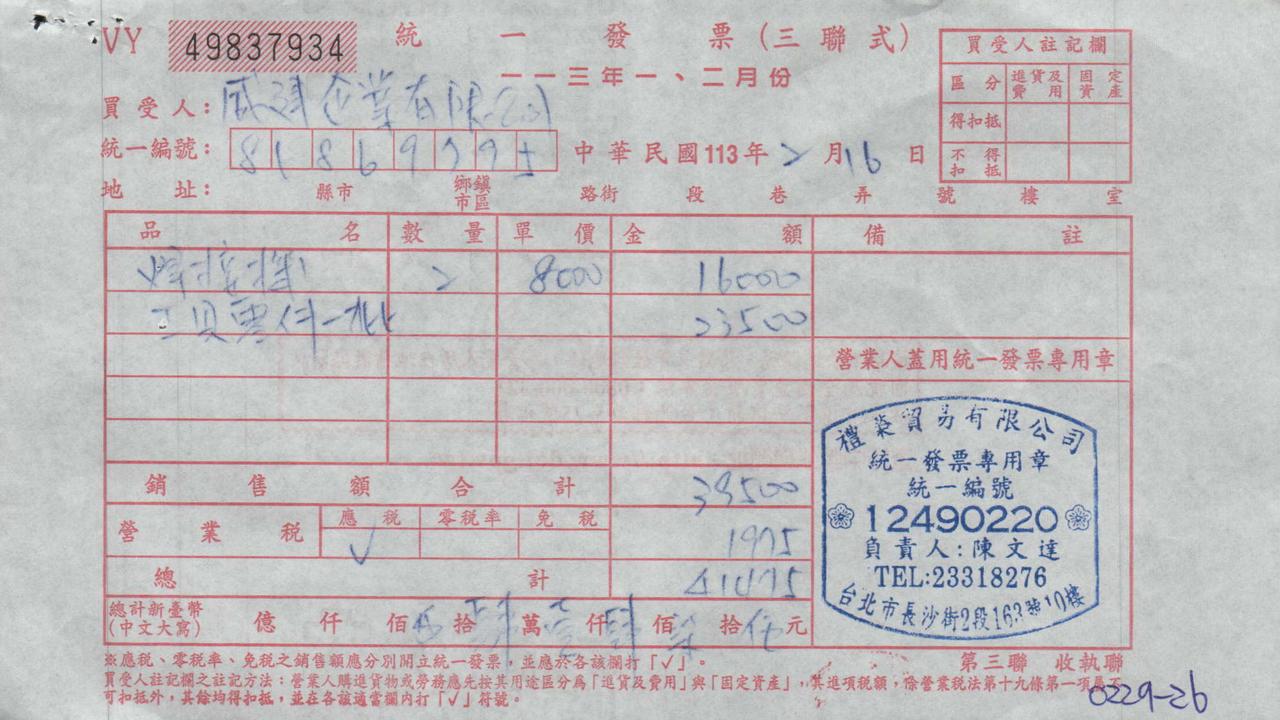 VY 49837934 統一發票(三聯式)
一一三年一、二月份
買受人註記欄
區分 進貨及費用 固定資產
得扣抵
不得扣抵
買受人: 企業有限公司
統一編號: 81869995 中華民國113年2月16日
地址: 縣市 鄉鎮市區 路街 段 巷 弄 號 樓 室
品名 數量 單價 金額 備註
焊接機 2 8000 16000
工具零件一批 23500
營業人蓋用統一發票專用章
銷售額合計 39500
營業稅 應稅 零稅率 免稅
√ 1975
總計 41475
總計新臺幣(中文大寫) 億 仟 佰 拾 肆 萬 壹 仟 肆 佰 柒 拾 伍 元
禮榮貿易有限公司
統一發票專用章
統一編號
12490220
負責人:陳文達
TEL:23318276
台北市長沙街2段163號10樓
※應稅、零稅率、免稅之銷售額應分別開立統一發票,並應於各該欄打「√」。
第三聯 收執聯
買受人註記欄之註記方法:營業人購進貨物或勞務應先按其用途區分為「進貨及費用」與「固定資產」,其進項稅額,除營業稅法第十九條第一項屬不
可扣抵外,其餘均得扣抵,並在各該適當欄內打「√」符號。
0229-26